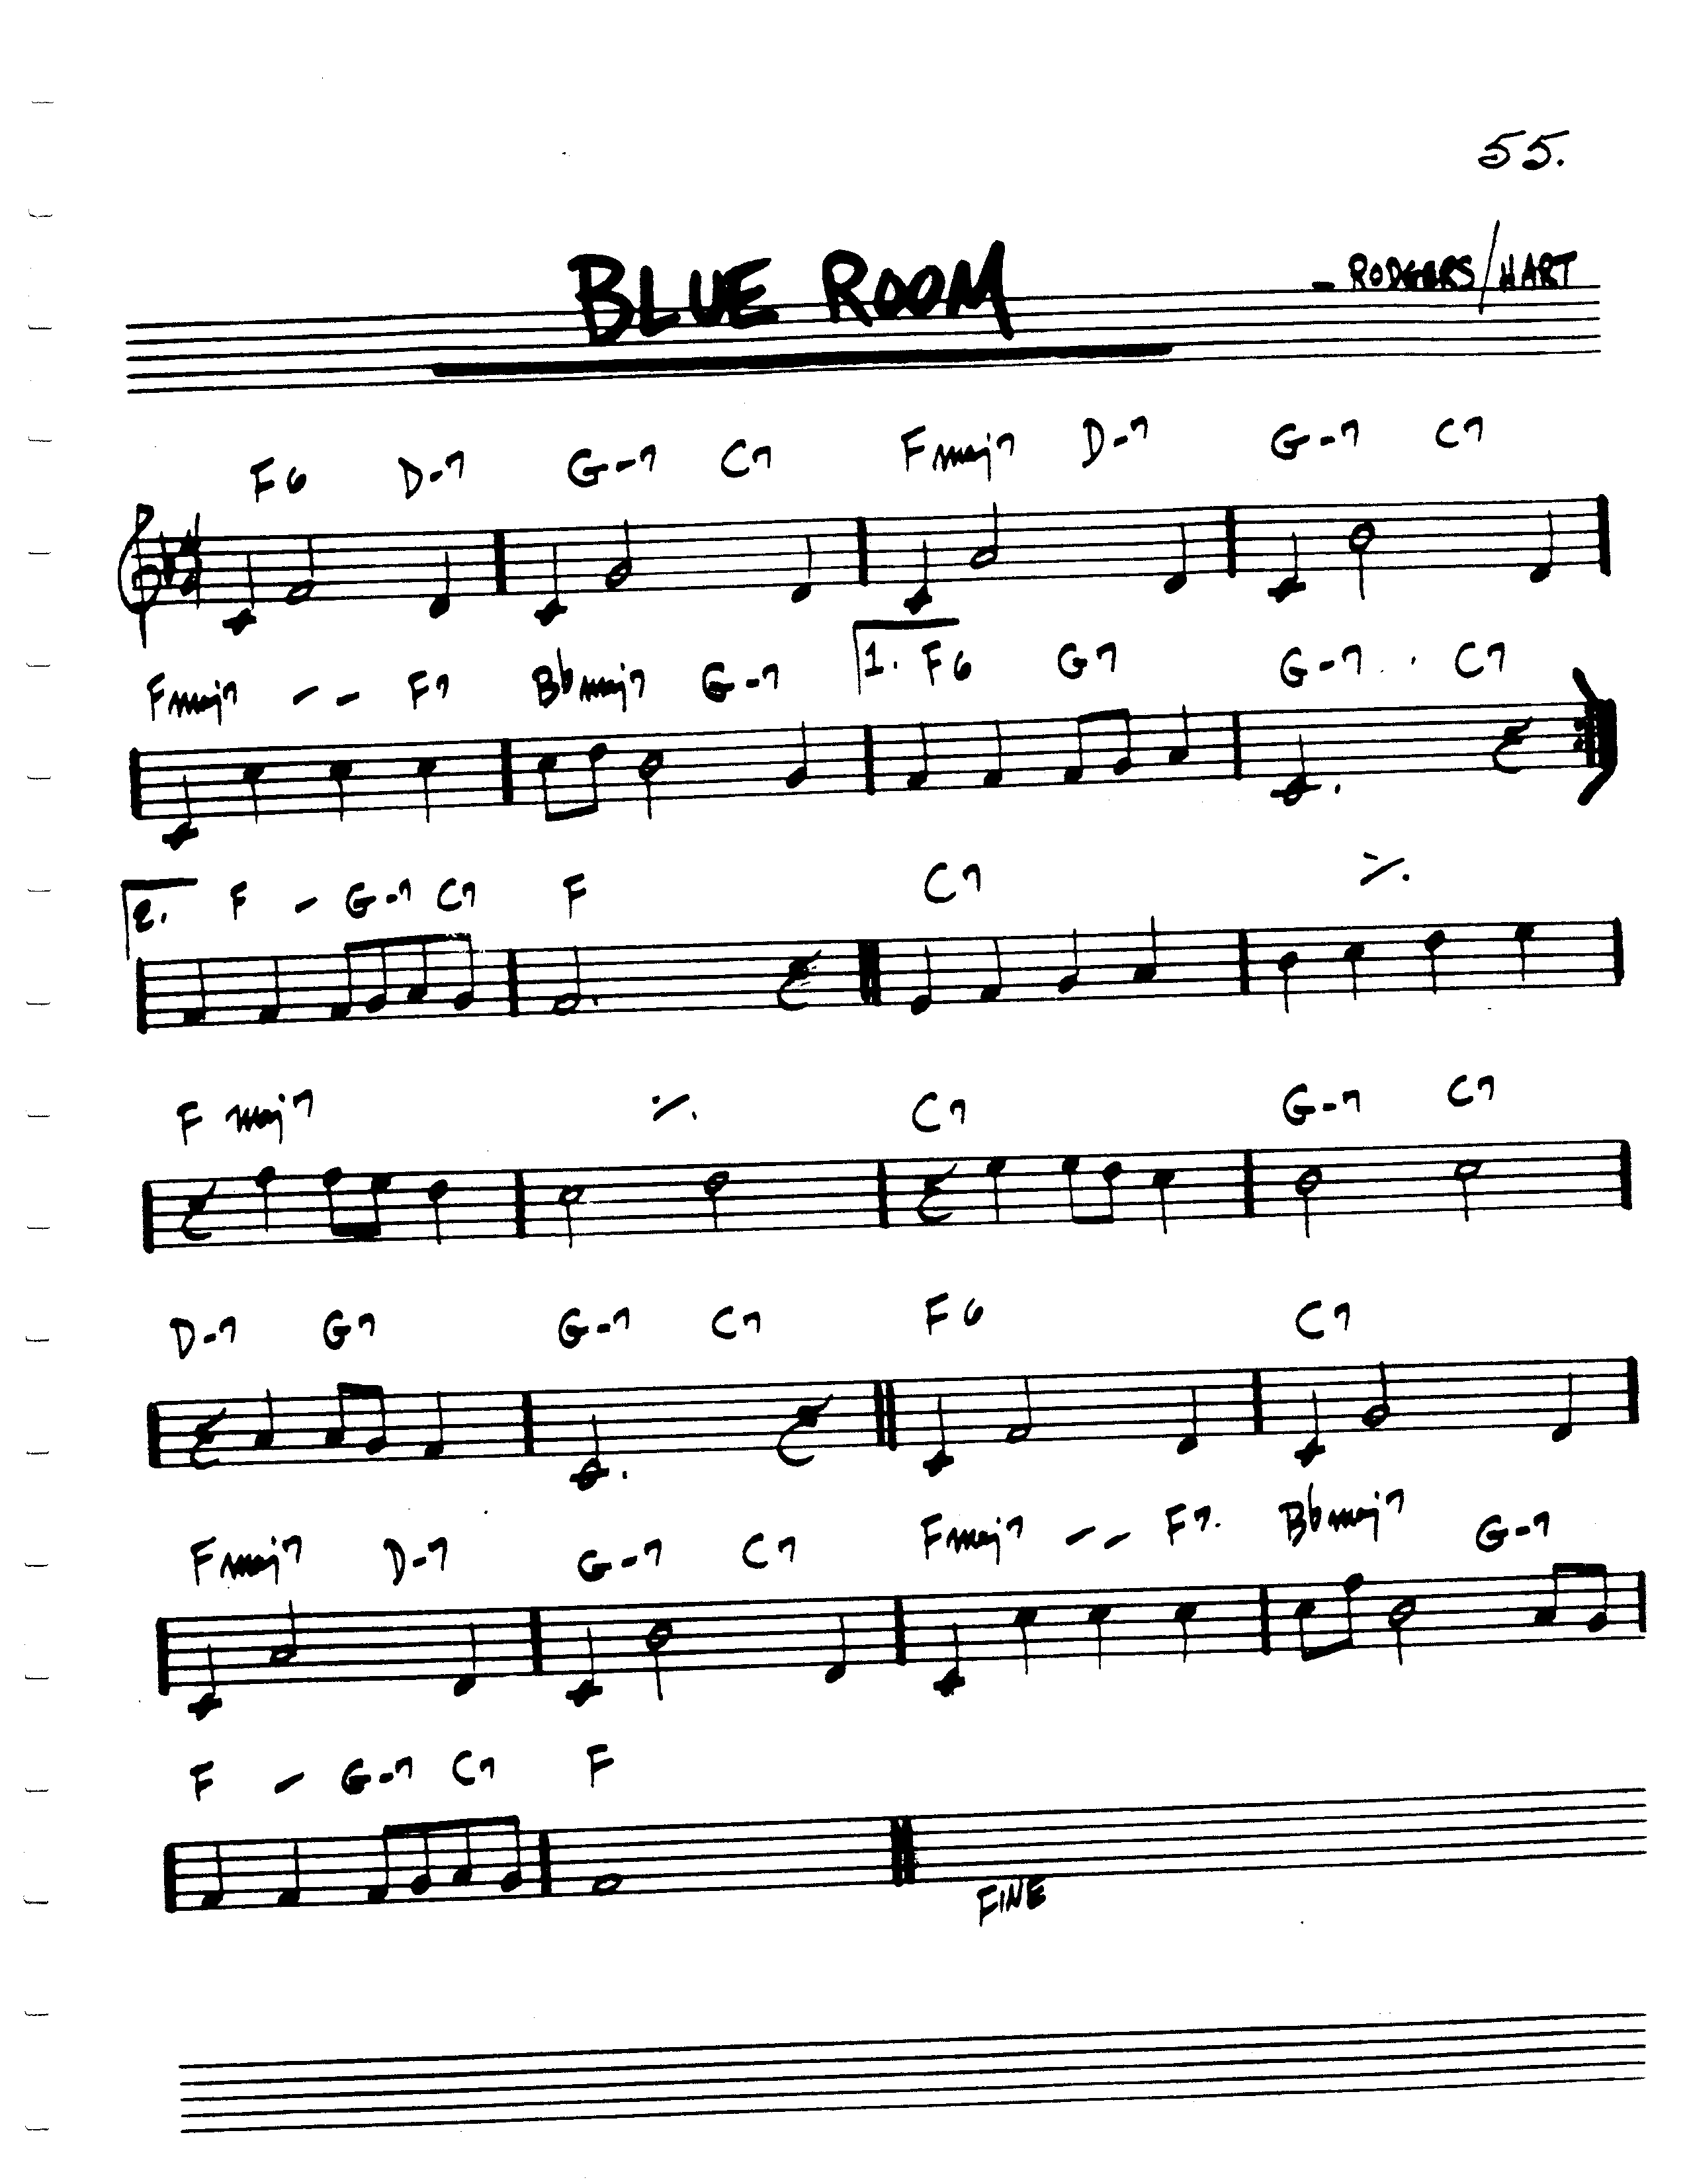 55.
BLUE ROOM
- RODGERS/HART
F6 D-7 G-7 C7 Fmaj7 D-7 G-7 C7
Fmaj7 - - F7 Bbmaj7 G-7 1. F6 G7 G-7 C7
2. F - G-7 C7 F C7 ٪
F maj7 ٪ C7 G-7 C7
D-7 G7 G-7 C7 F6 C7
Fmaj7 D-7 G-7 C7 Fmaj7 - - F7. Bbmaj7 G-7
F - G-7 C7 F
FINE